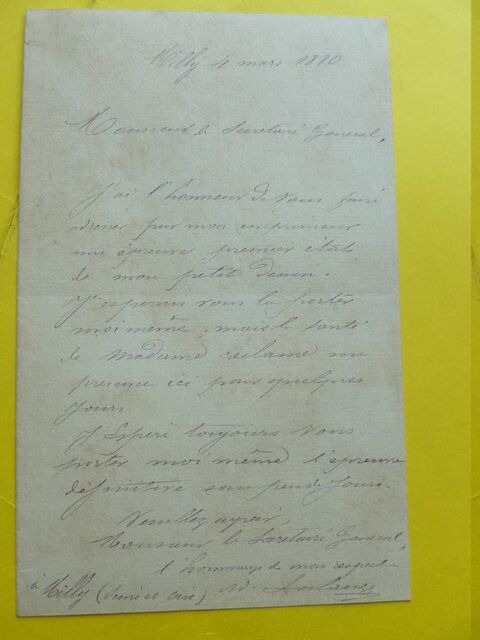 Milly 4 mars 1880
Monsieur le Secretaire General,
J'ai l'honneur de vous faire
adresser par mon imprimeur
une épreuve, premier état,
de mon petit dessin.
J'esperais vous la porter
moi même, mais la santé
de Madame réclame ma
presence ici pour quelques
jours.
J'espère toujours vous
porter moi même l'épreuve
définitive sous peu de jours.
Veuillez agréer,
Monsieur le Secretaire General,
l'hommage de mon respect
à Milly (Seine et Oise)